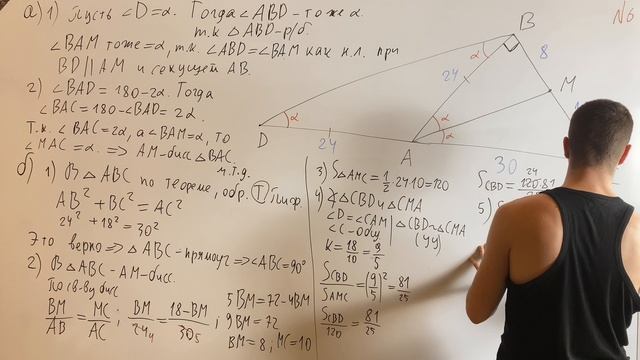 №6
а) 1) Пусть ∠D=α. Тогда ∠ABD - тоже α
т.к △ABD-р/б.
∠BAM тоже=α, т.к. ∠ABD=∠BAM как н.л. при
BD||AM и секущей AB.
2) ∠BAD = 180-2α. Тогда
∠BAC=180-∠BAD= 2α.
Т.к. ∠BAC=2α, а ∠BAM=α, то
∠MAC =α. => AM-бисс △BAC.
ч.т.д.
б) 1) В △ABC по теореме, обр. Т Пиф.
AB² + BC² = AC²
24² + 18² = 30²
Это верно => △ABC-прямоуг => ∠ABC=90°
2) В △ABC - AM-бисс.
По св-ву бис
BM/AB = MC/AC ; BM/24₄ = 18-BM/30₅ ;
5BM=72-4BM
9BM=72
BM=8, MC=10
3) S△AMC = 1/2·24·10=120
4) ∢ △CBD и △CMA
∠D=∠CAM
∠C-общ
△CBD~△CMA
(УУ)
K= 18/10 = 9/5
SCBD/SAMC = (9/5)² = 81/25
SCBD/120 = 81/25
SCBD= 120·81
24
5)
B
8
M
24
α
α
α
α
D
24
A
30